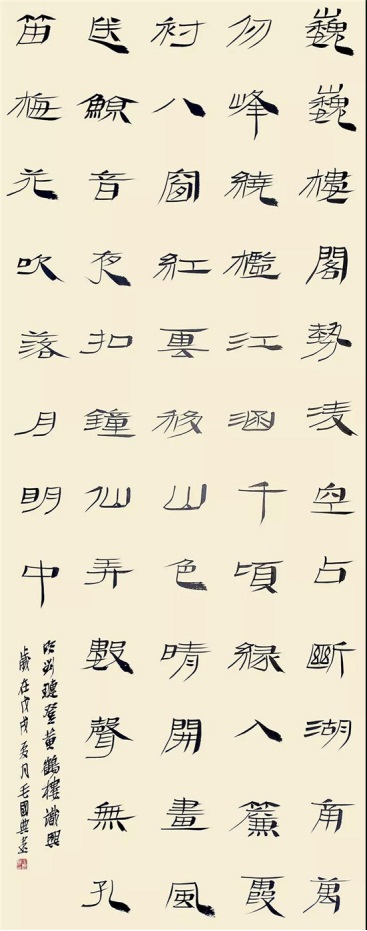 巍巍樓閣勢凌空占斷湖南萬
仞峰繞檻江涵千頃緑入簾霞
襯八窗紅雲移山色晴開畫風
送鯨音夜扣鐘仙弄數聲無孔
笛梅花吹落月明中
璉登黄鶴樓識興
歲在戊戌夏月毛國典書